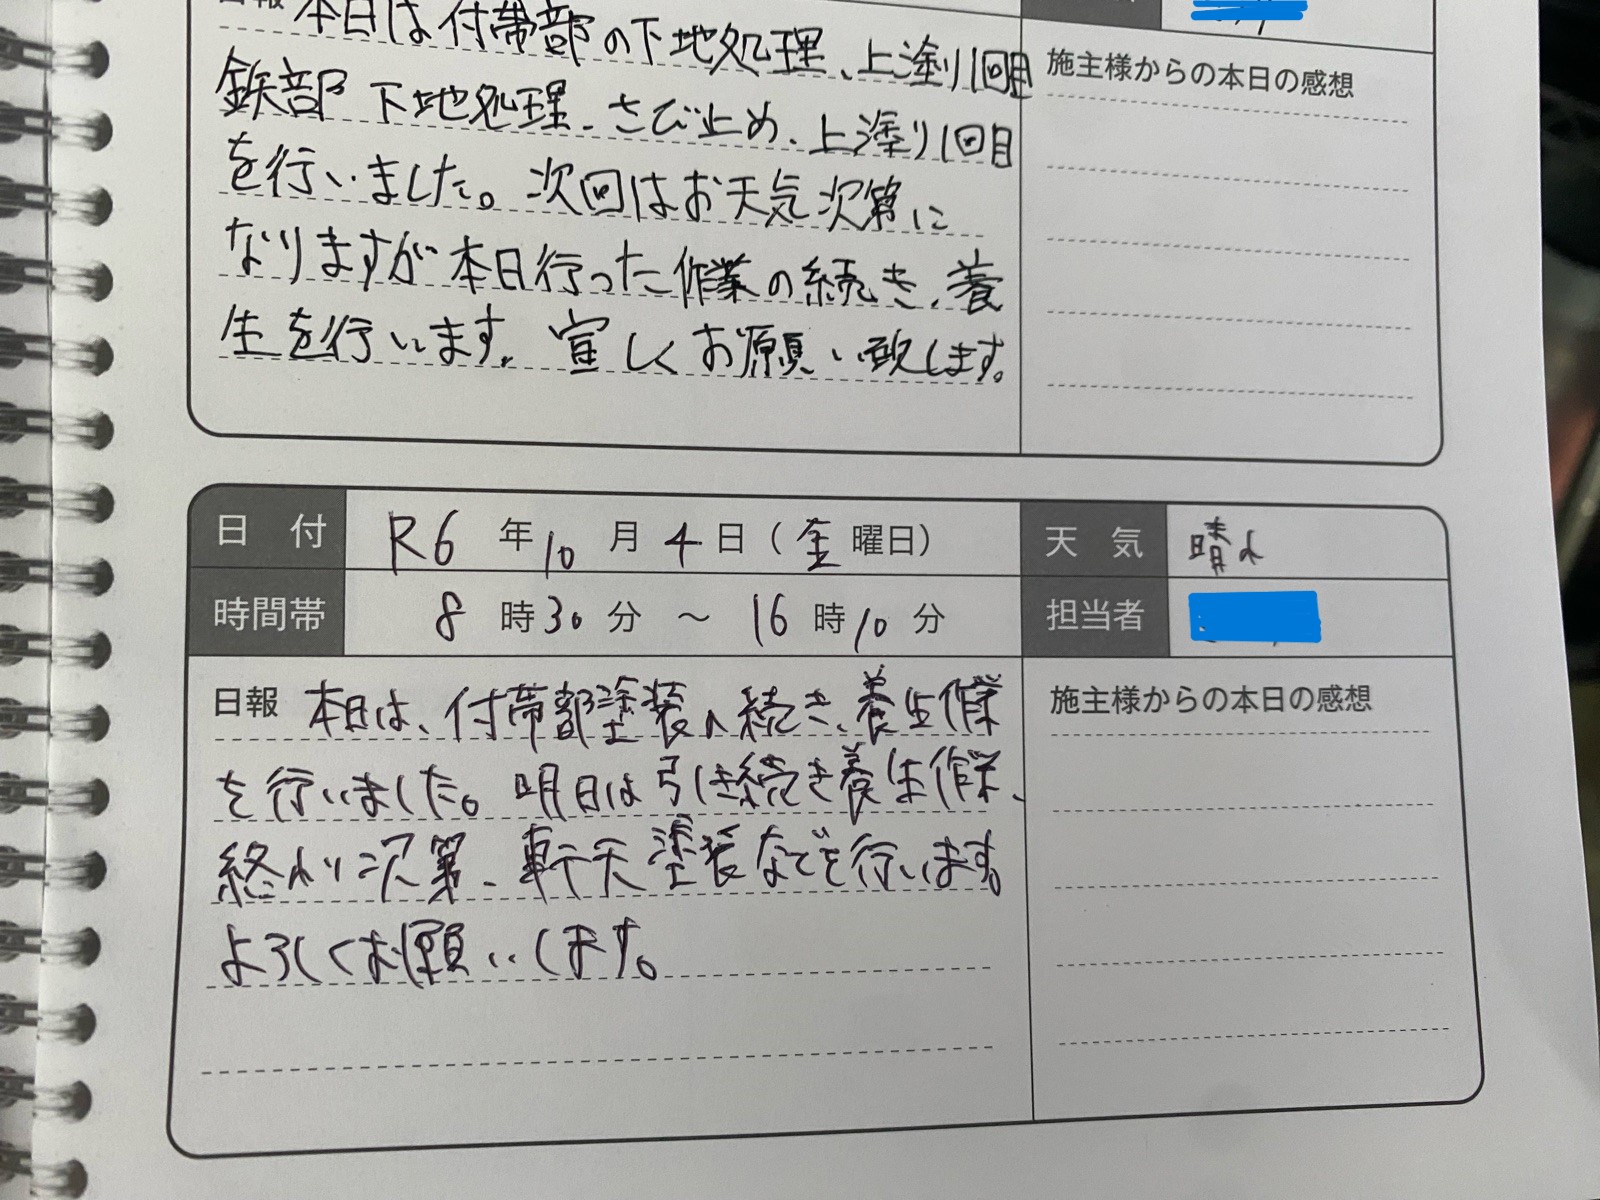 日報 本日は付帯部の下地処理、上塗り1回目
鉄部 下地処理、さび止め、上塗り1回目
を行いました。次回はお天気次第に
なりますが本日行った作業の続き、養
生を行います。宜しくお願い致します。
施主様からの本日の感想
日付 R6年10月4日(金曜日) 天気 晴れ
時間帯 8時30分 ~ 16時10分 担当者
日報 本日は、付帯部塗装の続き、養生作業
を行いました。明日は引き続き養生作業、
終わり次第、軒天塗装などを行います。
よろしくお願いします。
施主様からの本日の感想